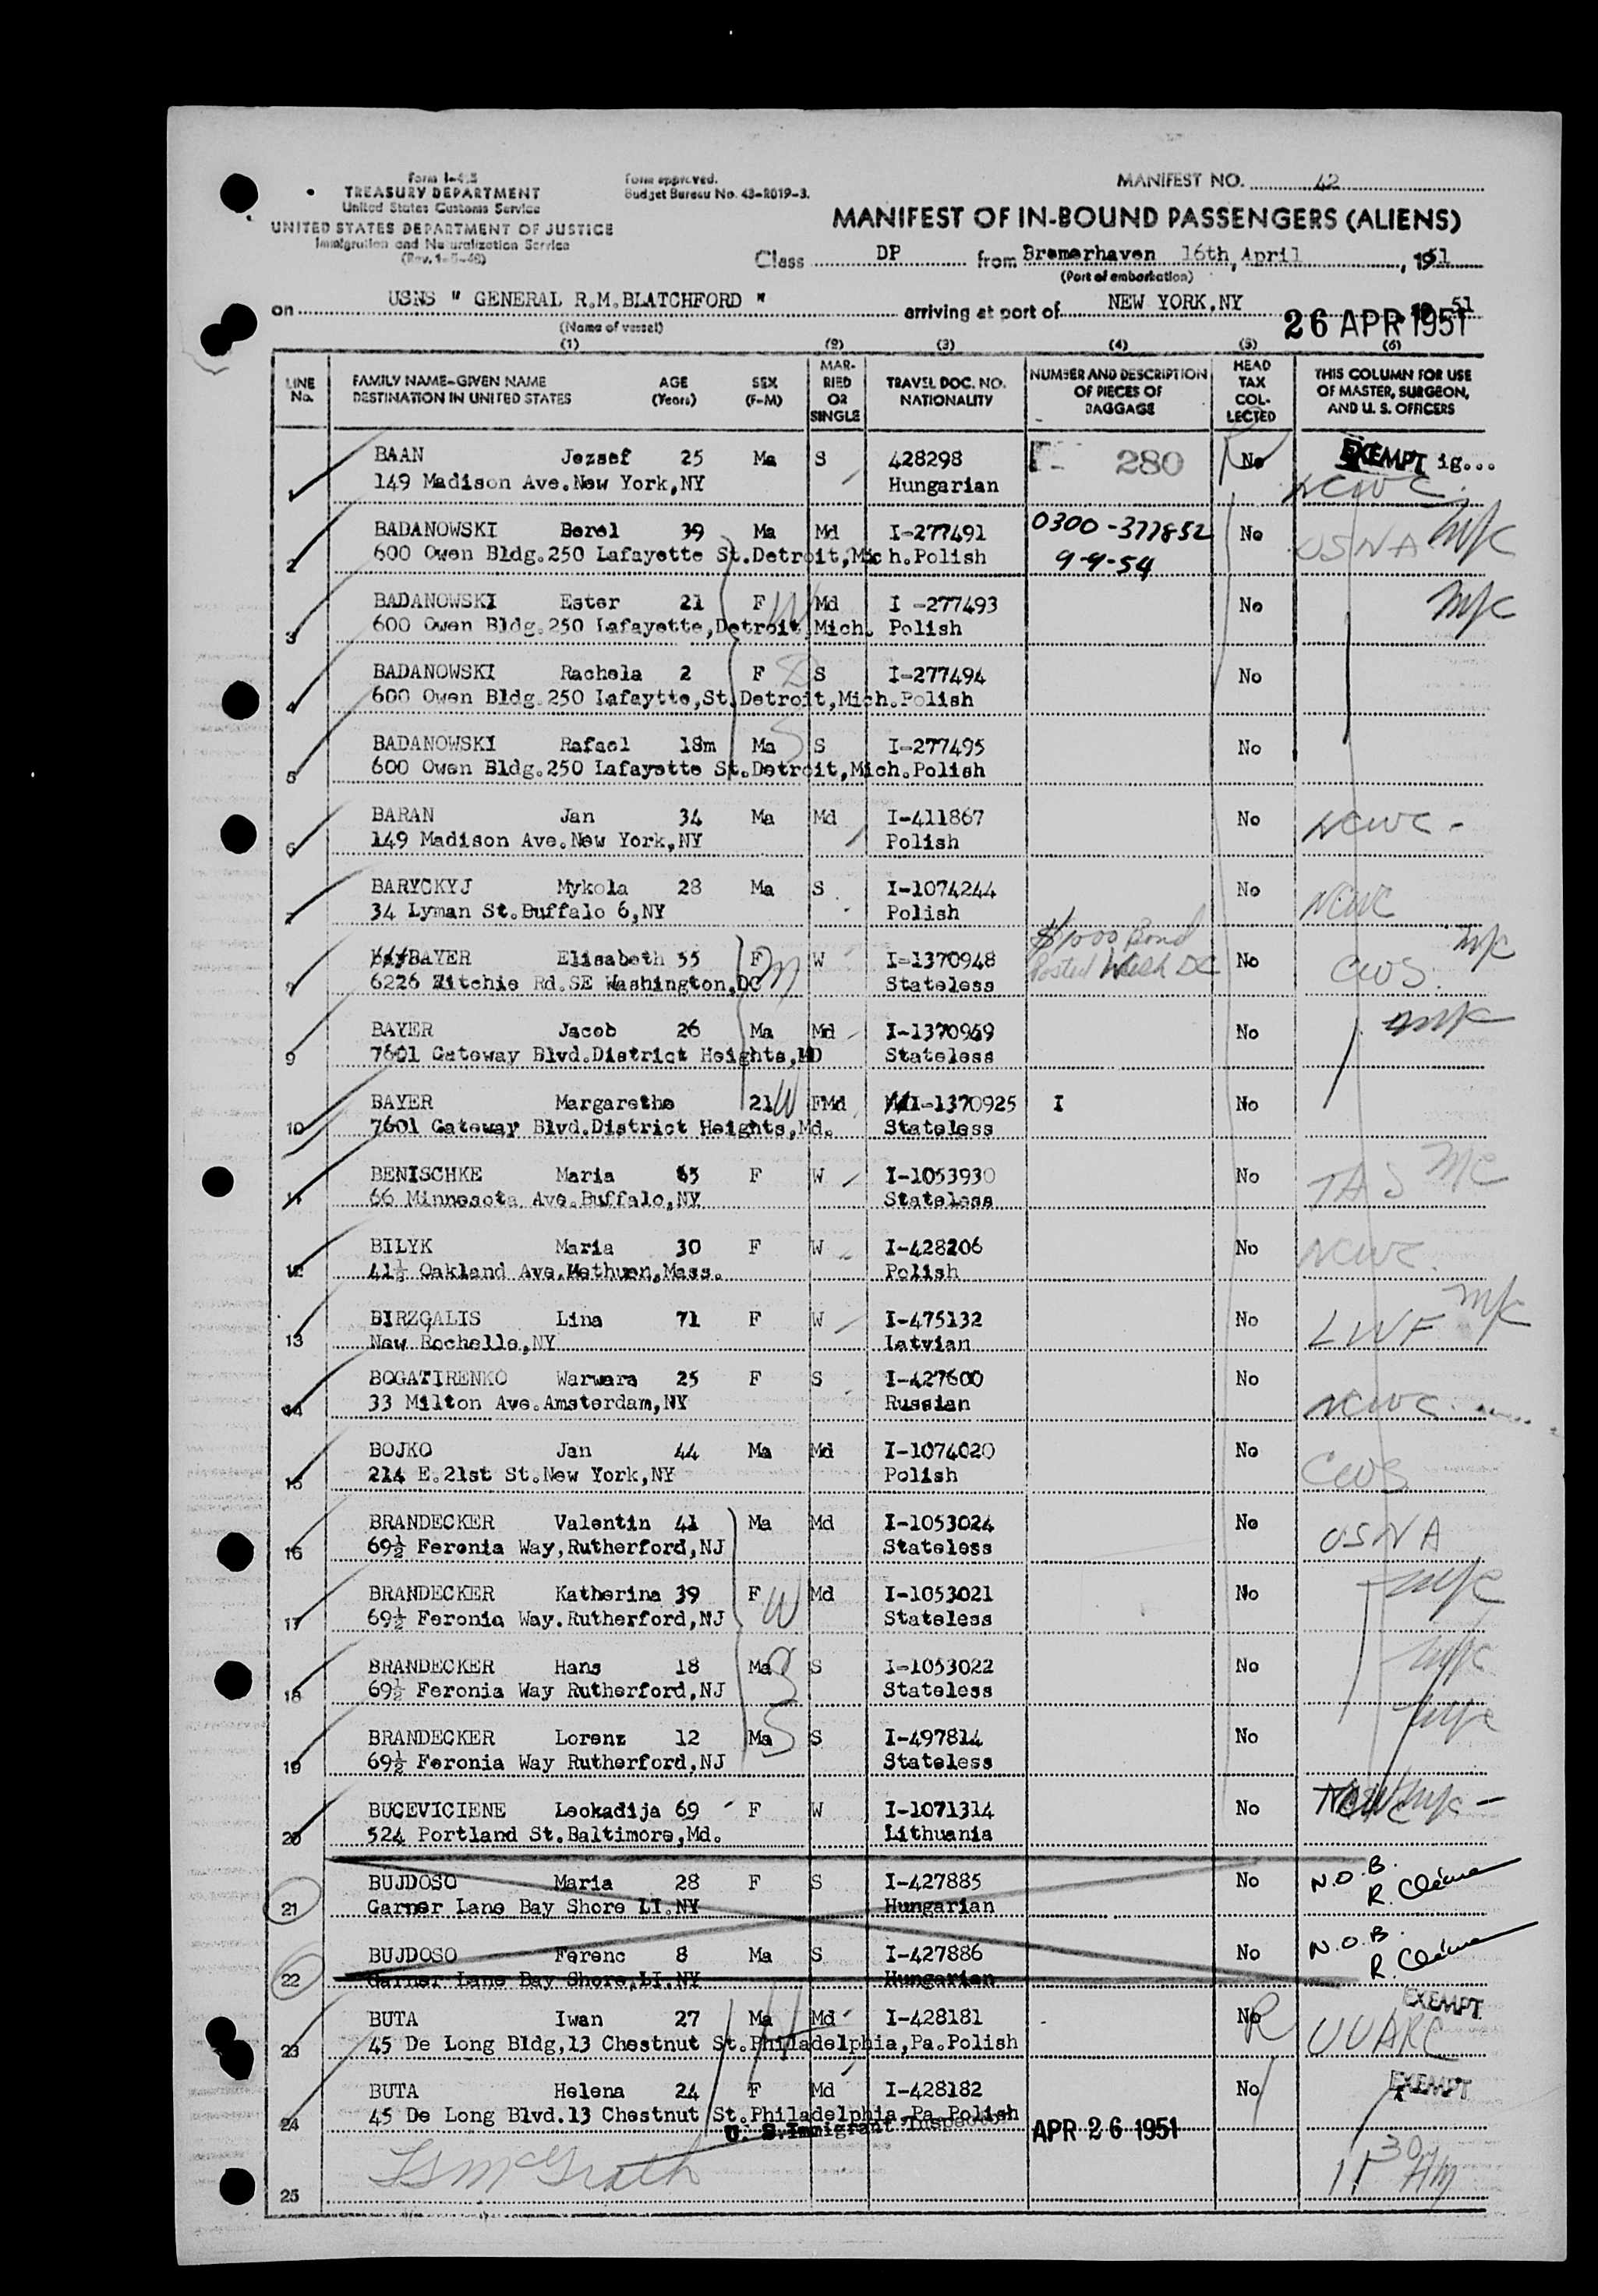 Form I-415
TREASURY DEPARTMENT
United States Customs Service
UNITED STATES DEPARTMENT OF JUSTICE
Immigration and Naturalization Service
(Rev. 1-5-48)
Form approved.
Budget Bureau No. 43-R019-3.
MANIFEST NO. 42
MANIFEST OF IN-BOUND PASSENGERS (ALIENS)
Class DP from Bremerhaven 16th, April, 1951
(Port of embarkation)
on USNS " GENERAL R.M.BLATCHFORD " arriving at port of NEW YORK,NY 51
(Name of vessel)
26 APR 1951
(1) (2) (3) (4) (5) (6)
LINE No. FAMILY NAME-GIVEN NAME DESTINATION IN UNITED STATES AGE (Years) SEX (F-M) MARRIED OR SINGLE TRAVEL DOC. NO. NATIONALITY NUMBER AND DESCRIPTION OF PIECES OF BAGGAGE HEAD TAX COLLECTED THIS COLUMN FOR USE OF MASTER, SURGEON, AND U. S. OFFICERS
BAAN Jozsef 25 Ma S 428298 280 No EXEMPT ig...
1 149 Madison Ave.New York,NY Hungarian NCWC
BADANOWSKI Berel 39 Ma Md I-277491 0300-377852 No USNA M/C
2 600 Owen Bldg.250 Lafayette St.Detroit,Mich.Polish 9-9-54
BADANOWSKI Ester 21 F W Md I -277493 No M/C
3 600 Owen Bldg.250 Lafayette,Detroit,Mich. Polish
BADANOWSKI Rachela 2 F D S I-277494 No
4 600 Owen Bldg.250 Lafaytte,St.Detroit,Mich.Polish
BADANOWSKI Rafael 18m Ma S S I-277495 No
5 600 Owen Bldg.250 Lafayette St.Detroit,Mich.Polish
BARAN Jan 34 Ma Md I-411867 No NCWC -
6 149 Madison Ave.New York,NY Polish
BARYCKYJ Mykola 28 Ma S I-1074244 No NCWC
7 34 Lyman St.Buffalo 6,NY Polish
$1000 Bond
BAYER Elisabeth 55 F M W I-1370948 Posted Wash DC No CWS M/C
8 6226 Ritchie Rd.SE Washington,DC Stateless
BAYER Jacob 26 Ma Md I-1370949 No M/C
9 7601 Gateway Blvd.District Heights,MD Stateless
BAYER Margarethe 21 W FMd I-1370925 I No
10 7601 Gateway Blvd.District Heights,Md. Stateless
BENISCHKE Maria 65 F W I-1053930 No TAS M/C
11 66 Minnesota Ave.Buffalo,NY Stateless
BILYK Maria 30 F W I-428206 No NCWC
12 41½ Oakland Ave.Methuen,Mass. Polish
BIRZGALIS Lina 71 F W I-475132 No LWF M/C
13 New Rochelle,NY Latvian
BOGATIRENKO Warwara 25 F S I-427600 No
14 33 Milton Ave.Amsterdam,NY Russian NCWC
BOJKO Jan 44 Ma Md I-1074020 No
15 214 E.21st St.New York,NY Polish CWS
BRANDECKER Valentin 41 Ma Md I-1053024 No USNA
16 69½ Feronia Way,Rutherford,NJ Stateless
BRANDECKER Katherina 39 F W Md I-1053021 No M/C
17 69½ Feronia Way.Rutherford,NJ Stateless
BRANDECKER Hans 18 Ma S S I-1053022 No M/C
18 69½ Feronia Way Rutherford,NJ Stateless
BRANDECKER Lorenz 12 Ma S S I-497814 No M/C
19 69½ Feronia Way Rutherford,NJ Stateless
BUCEVICIENE Leokadija 69 F W I-1071314 No NCWC M/C -
20 524 Portland St.Baltimore,Md. Lithuania
BUJDOSO Maria 28 F S I-427885 No N.O.B.
21 Garner Lane Bay Shore LI.NY Hungarian
BUJDOSO Ferenc 8 Ma S I-427886 No N.O.B.
22 Garner Lane Bay Shore,LI.NY Hungarian
EXEMPT
BUTA Iwan 27 Ma Md I-428181 No R UUARC
23 45 De Long Bldg,13 Chestnut St.Philadelphia,Pa.Polish
BUTA Helena 24 F Md I-428182 No EXEMPT
24 45 De Long Blvd.13 Chestnut St.Philadelphia,Pa.Polish
U. S. Immigrant Inspector APR 26 1951
McGrath 11 30 AM
25